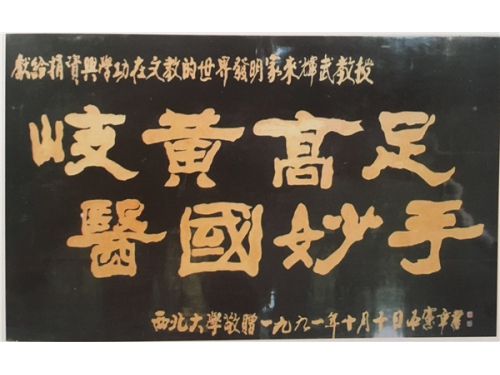 獻給捐資興學功在文教的世界發明家來輝武教授
岐黄髙足
醫國妙手
西北大學敬贈一九九一年十月十日 憲章書